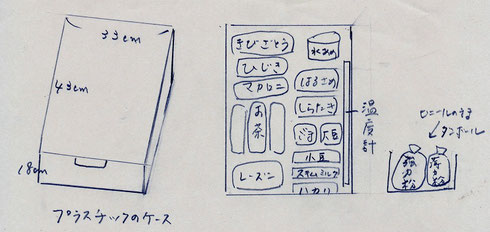 33cm
43cm
18cm
プラスチックのケース
きびざとう
水あめ
ひじき
マカロニ
はるさめ
しらたき
お茶
ごま
大豆
小豆
スキムミルク
レーズン
ハカリ
温度計
ビニールのまま
ダンボール
強力粉
薄力粉